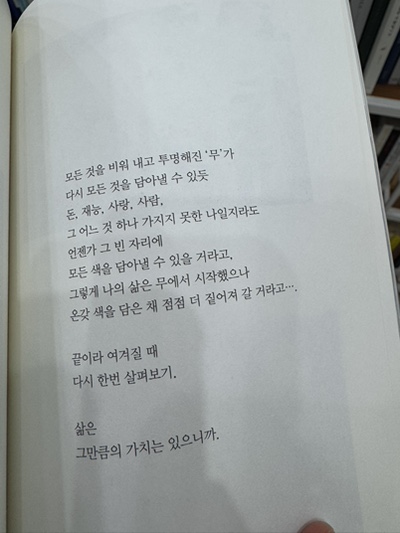 모든 것을 비워 내고 투명해진 ‘무’가
다시 모든 것을 담아낼 수 있듯
돈, 재능, 사랑, 사람,
그 어느 것 하나 가지지 못한 나일지라도
언젠가 그 빈 자리에
모든 색을 담아낼 수 있을 거라고,
그렇게 나의 삶은 무에서 시작했으나
온갖 색을 담은 채 점점 더 짙어져 갈 거라고….
끝이라 여겨질 때
다시 한번 살펴보기.
삶은
그만큼의 가치는 있으니까.